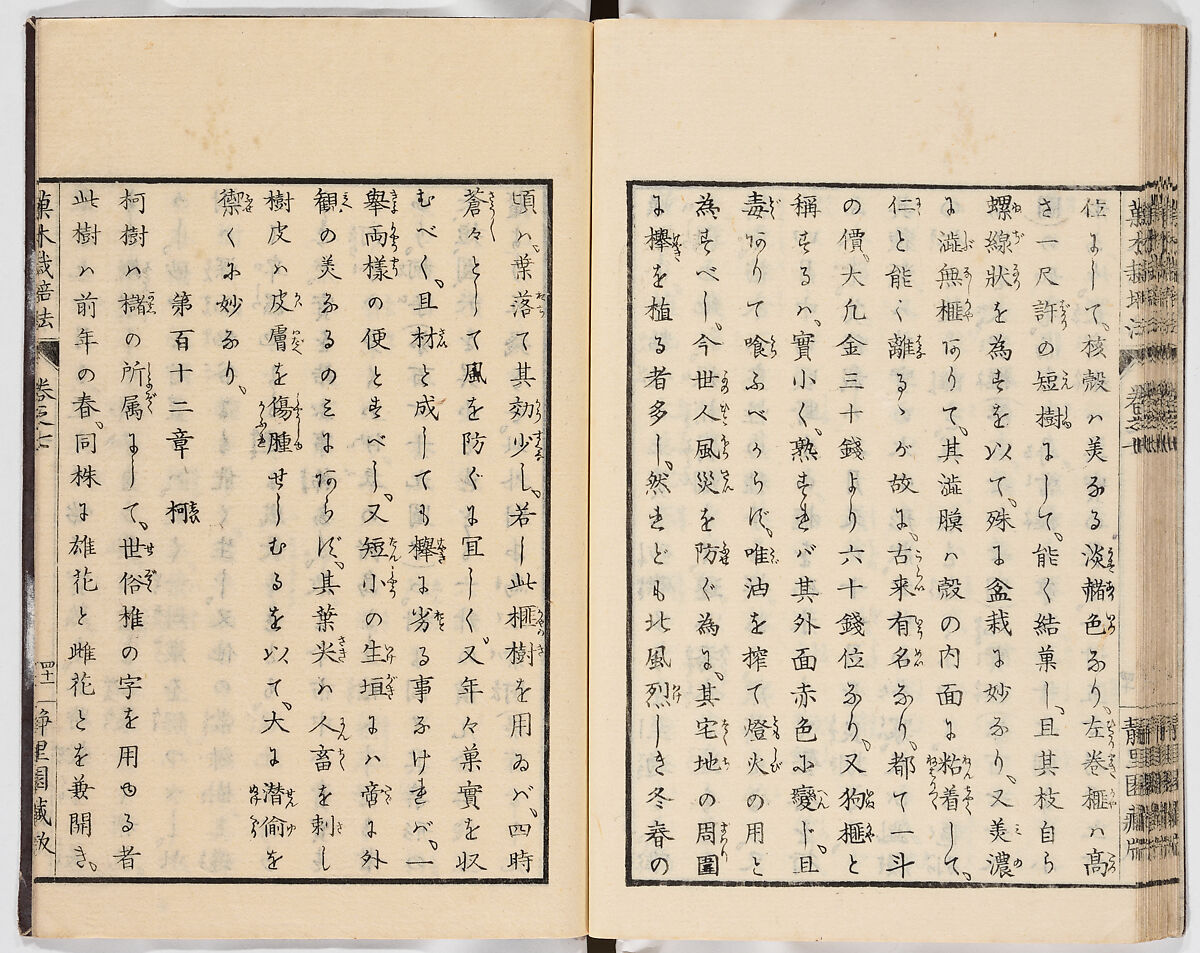 菓木栽培法 巻之七 靜里園藏版
位ふして、核殻ハ美なる淡赭色なり、左巻榧ハ高
さ一尺許の短樹にして、能く結菓し、且其枝自ら
螺線狀を為すを以て、殊に盆栽に妙なり、又美濃
に澁無榧ありて、其澁膜ハ殻の内面に粘着して、
仁と能く離るゝが故に、古来有名なり、都て一斗
の價、大凢金三十錢より六十錢位なり、又狗榧と
稱するハ、實小く、熟すれバ其外面赤色に變じ、且
毒ありて喰ふべからず、唯油を搾て燈火の用と
為すべし、今世人風災を防ぐ為に、其宅地の周圍
に欅を植る者多し、然れども北風烈しき冬春の
頃ハ、葉落て其効少し、若し此榧樹を用ゐバ、四時
蒼々として風を防ぐに冝しく、又年々菓實を収
むべく、且材と成しても欅に劣る事なけれバ、一
舉両様の便とすべし、又短小の生垣にハ啻に外
観の美なるのミにあらず、其葉尖ハ人畜を刺し
樹皮ハ皮膚を傷腫せしむるを以て、大に潜偷を
禦くに妙なり、
第百十二章 柯
柯樹ハ櫧の所属にして、世俗椎の字を用ゆる者
此樹ハ前年の春、同株に雄花と雌花とを兼開き、
菓木栽培法 巻之七 四十一 靜里園藏版